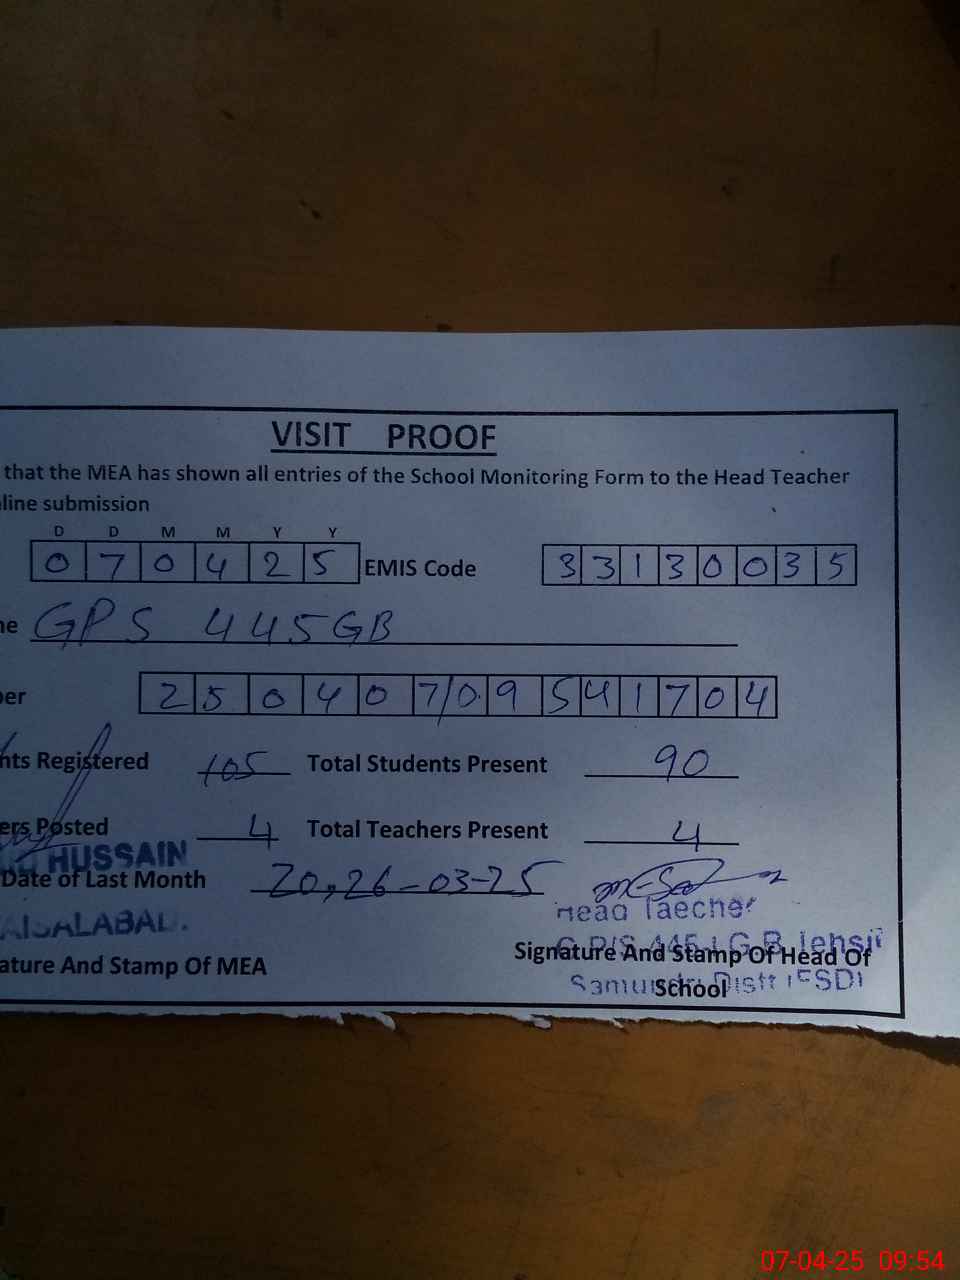 VISIT PROOF
that the MEA has shown all entries of the School Monitoring Form to the Head Teacher
line submission
D D M M Y Y
0 7 0 4 2 5 EMIS Code 3 3 1 3 0 0 3 5
GPS 445GB
2 5 0 4 0 7 0 9 5 4 1 7 0 4
nts Registered 105 Total Students Present 90
ers Posted 4 Total Teachers Present 4
HUSSAIN
Date of Last Month 20,26-03-25
Head Taecher
AISALABAD.
G.P/S 445 G.B Tehsil
ature And Stamp Of MEA Signature And Stamp Of Head Of
School
Samundri Distt FSD
07-04-25 09:54